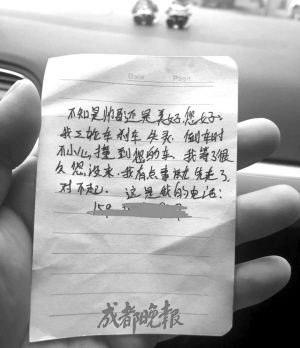 Date Page
不知是帅哥还是美女,您好:
我三轮车刹车失灵.倒车时
不小心撞到您的车.我等了很
久您没来.我有点事就先走了
对不起.这是我的电话:
150
成都晚报